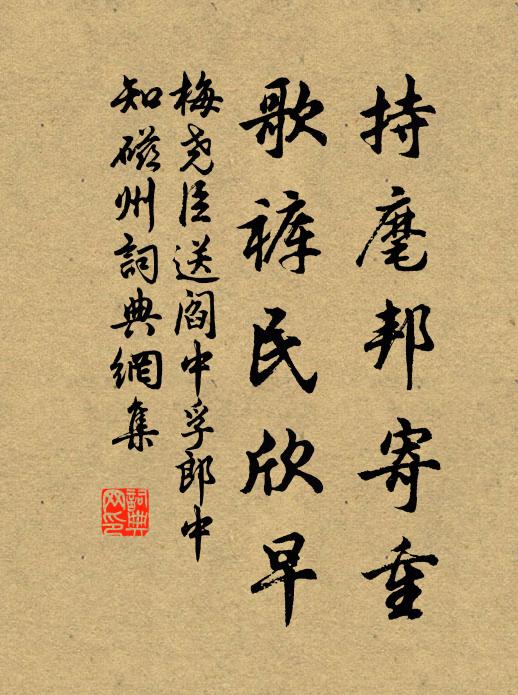 持麾邦寄重
歌裤民欣早
梅尧臣送阎中孚郎中
知磁州詞典網集
詞典
网印